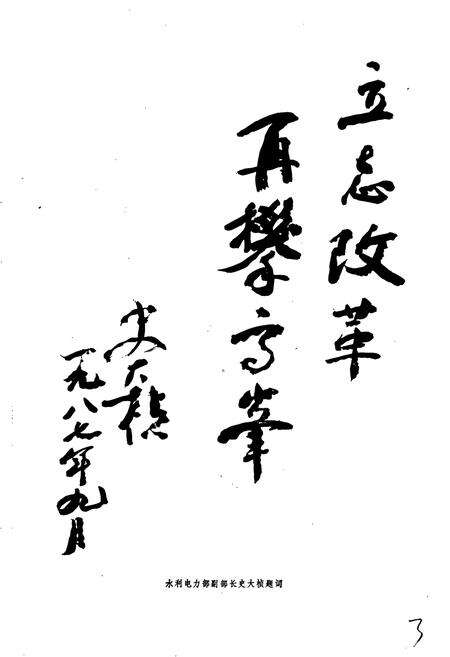 立志改革
再攀高峯
史大桢
一九八七年九月
水利电力部副部长史大桢题词
3